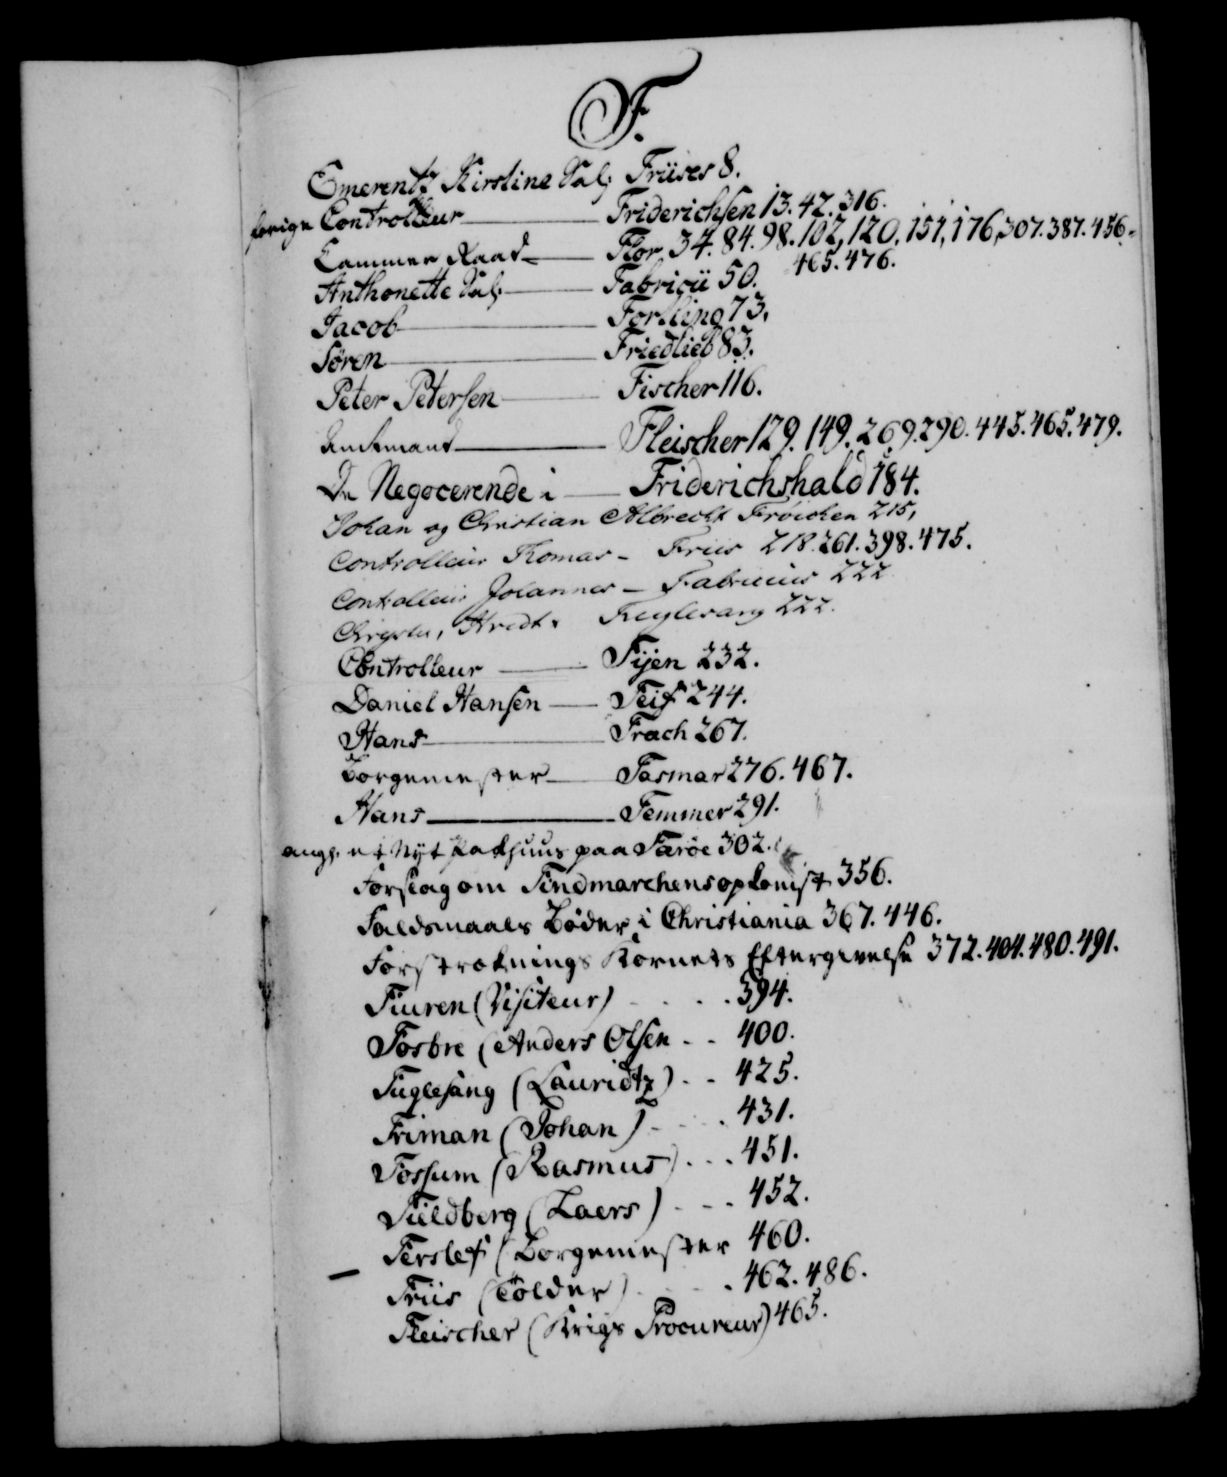 F.
Emerentz Kirstine Sal. Friises 8.
forige Controlleur Friderichsen 13. 42. 316.
Cammer Raad Flor 34. 84. 98. 102, 120, 151, 176, 307. 387. 456.
465. 476.
Anthonette Sal. Fabricii 50.
Jacob Forlling 73,
Søren Friedlieb 83.
Peter Petersen Fischer 116.
Amtmand Fleischer 129. 149. 269. 290. 445. 465. 479.
De Negocerende i Friderichshald 184.
Johan og Christian Albrecht Frôichen 215,
Controlleur Thomas - Friis 218. 261. 398. 475.
Controlleur Johannes - Fabricius 222
Fuglesang 222.
Controlleur Fijen 232.
Daniel Hansen Feif 244.
Hans Frach 267.
Borgemester Fasmar 276. 467.
Hans Femmer 291.
ang. et Nyt Pakhuus paa Færôe 302.
Forslag om Findmarchens opkomst 356.
Faldsmaals Bôder i Christiania 367. 446.
Forstræknings Kornets Eftergivelse 372. 404. 480. 491.
Fiuren (Visiteur) . . . . 394.
Fosbre (Anders Olsen . . 400.
Fuglesang (Lauridtz) . . 425.
Friman (Johan) . . . . 431.
Fossum (Rasmus) . . . 451.
Fieldberg (Laers) . . . 452.
Ferslef (Borgemester 460.
Friis (Tolder) . . . . 462. 486.
Fleischer (Krigs Procureur) 465.